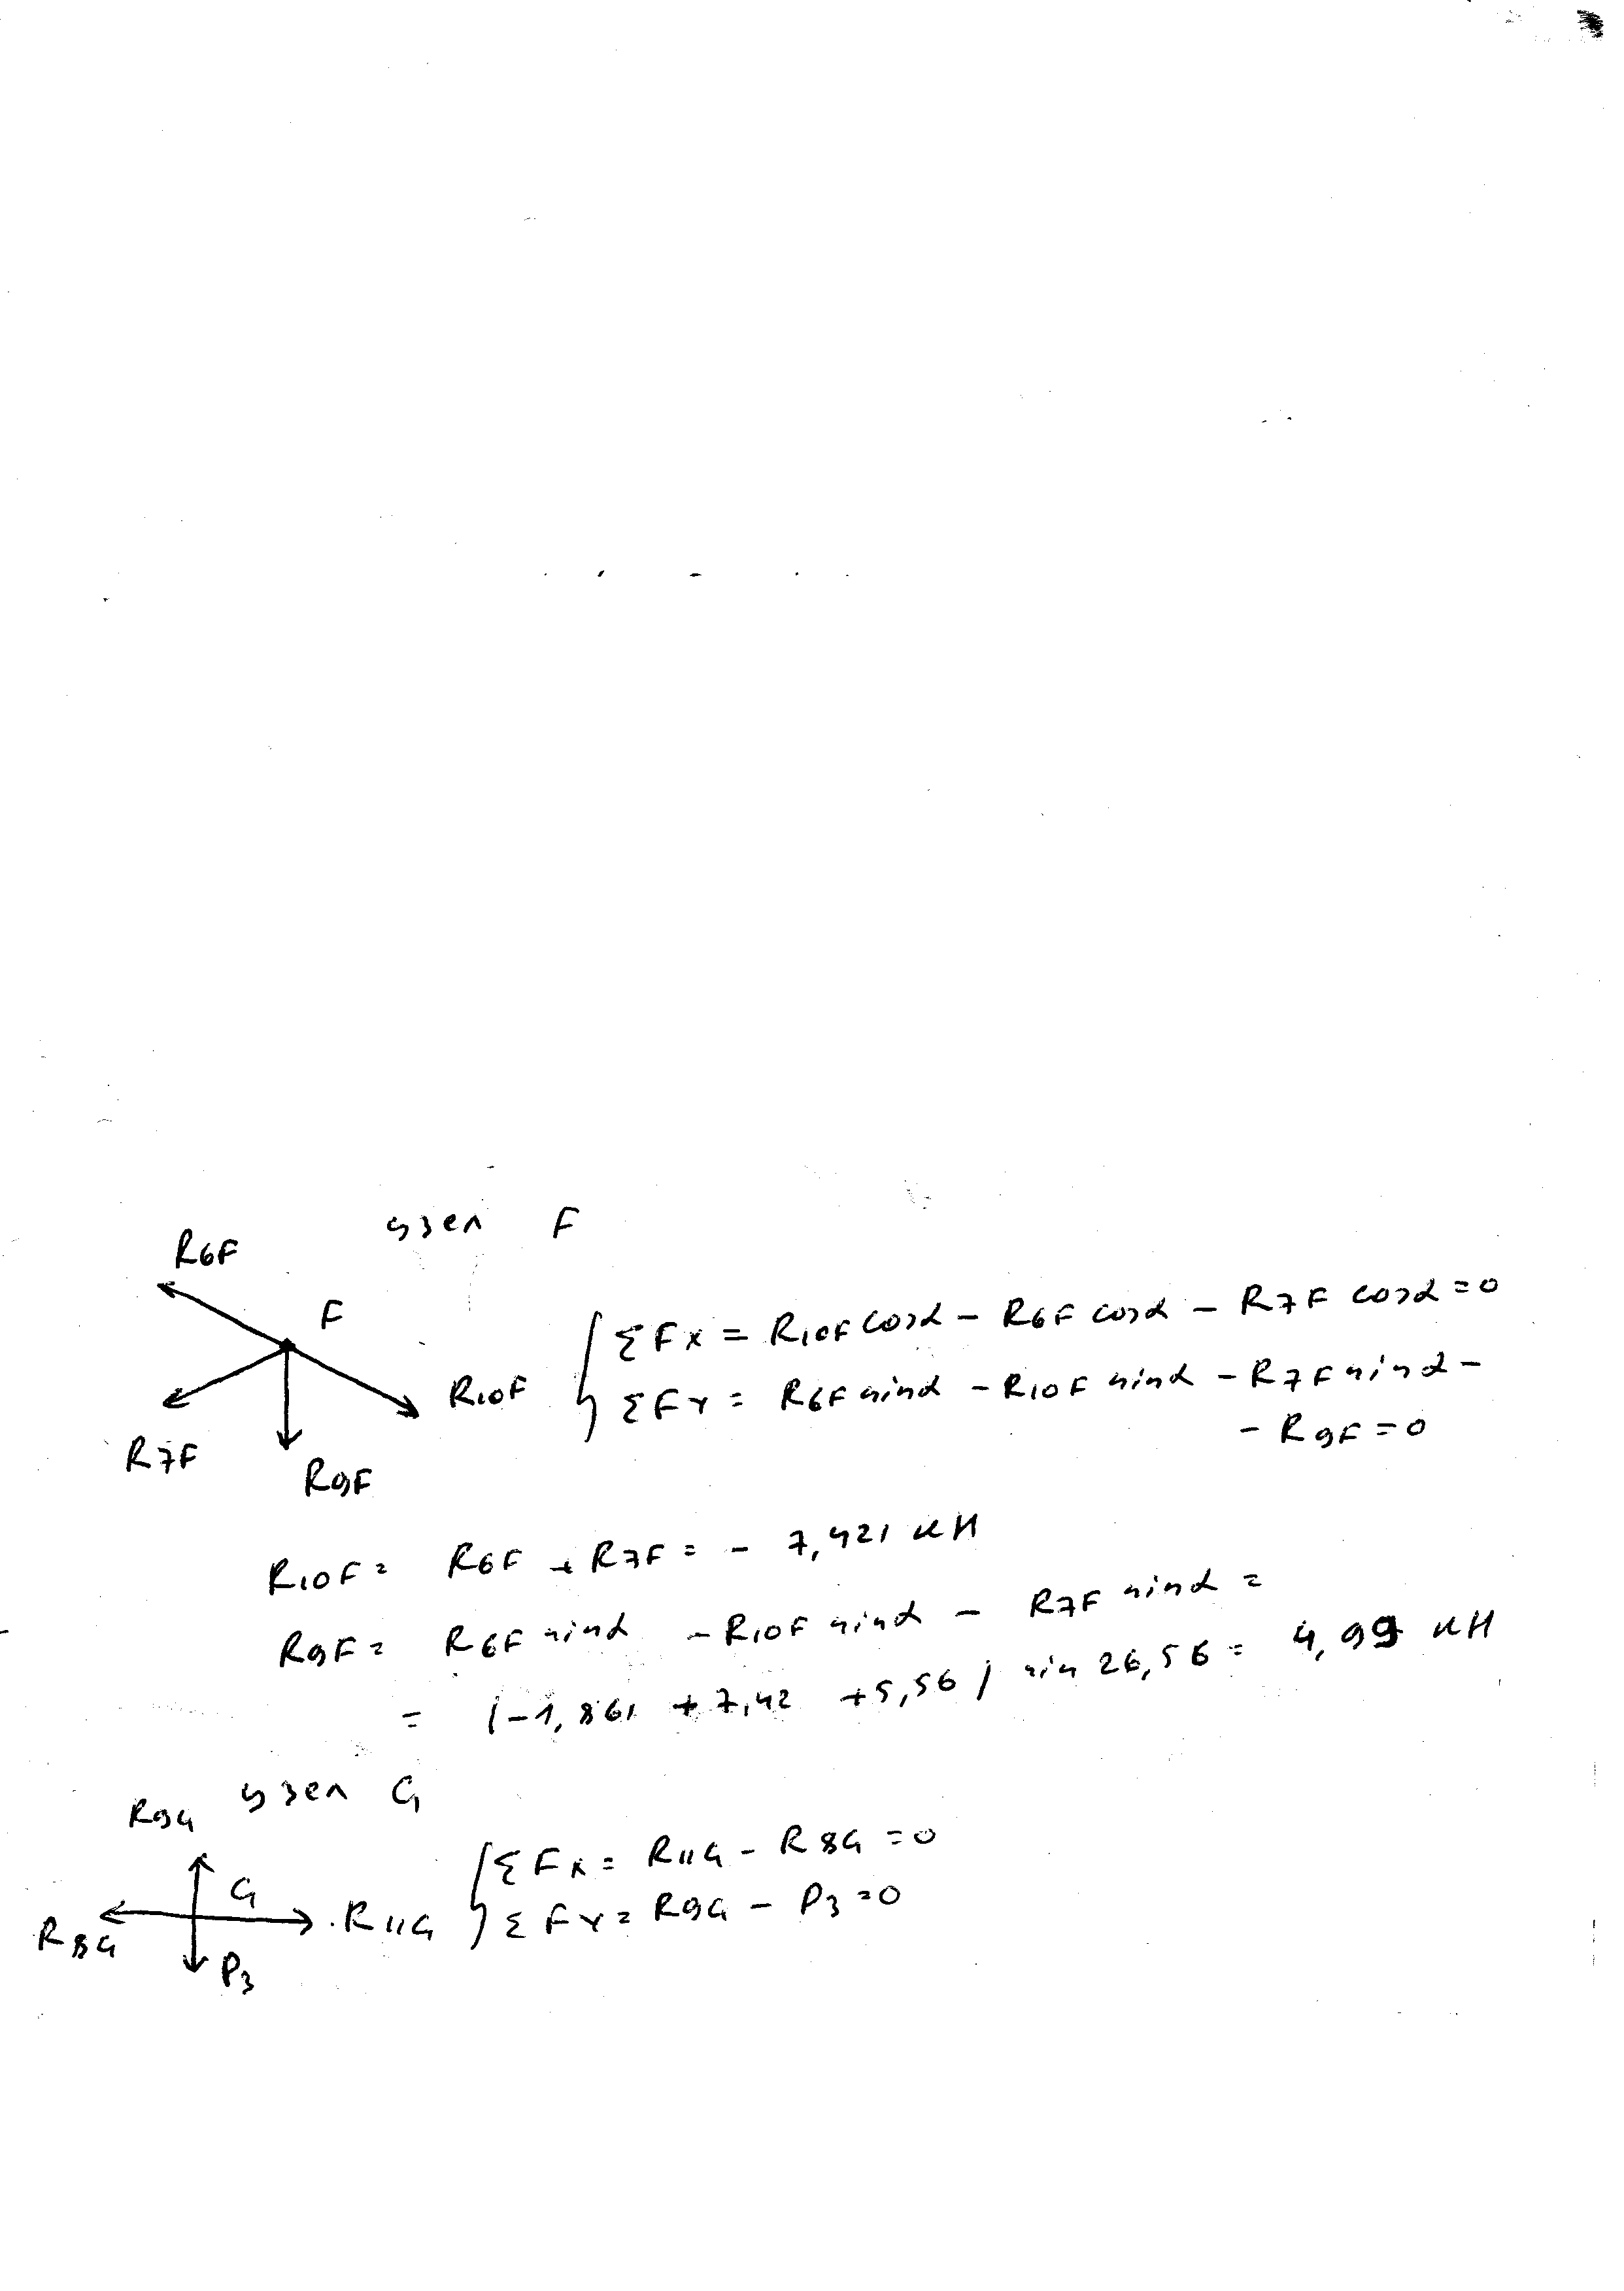 узел F
R6F
F
R10F
R7F
R9F
ΣFx = R10F cosα – R6F cosα – R7F cosα = 0
ΣFY = R6F sinα – R10F sinα – R7F sinα –
– R9F = 0
R10F = R6F + R7F = – 7,421 кН
R9F = R6F sinα – R10F sinα – R7F sinα =
= (–1,861 + 7,42 + 5,56) sin 26,56 = 4,99 кН
узел G
R9G
G
R8G
R11G
P3
ΣFx = R11G – R8G = 0
ΣFY = R9G – P3 = 0